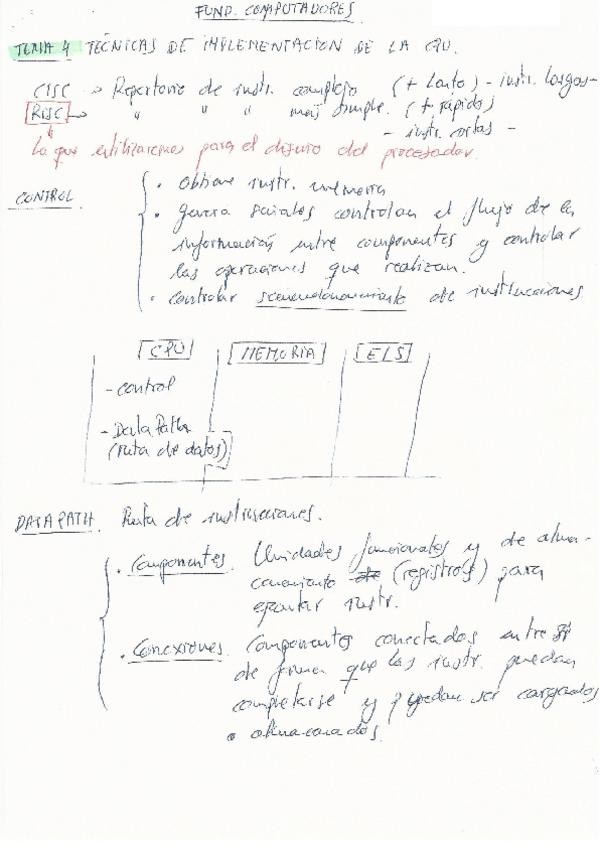 FUND. COMPUTADORES
TEMA 4 TÉCNICAS DE IMPLEMENTACIÓN DE LA CPU.
CISC → Repertorio de instr. complejo (+ lento) - instr. largas -
RISC → " " " más simple. (+ rápido)
- instr. cortas -
La que utilizaremos para el diseño del procesador.
CONTROL
· Obtiene instr. memoria
· genera señales controlan el flujo de la
información entre componentes y controlar
las operaciones que realizan.
· Controlar secuenciamiento de instrucciones
CPU MEMORIA E/S
- control
- Data Path
(ruta de datos)
DATA PATH. Ruta de instrucciones.
· Componentes. Unidades funcionales y de alma-
cenamiento de (registros) para
ejecutar instr.
· Conexiones. Componentes conectados entre sí
de forma que las instr. puedan
completarse y puedan ser cargados
o almacenados.